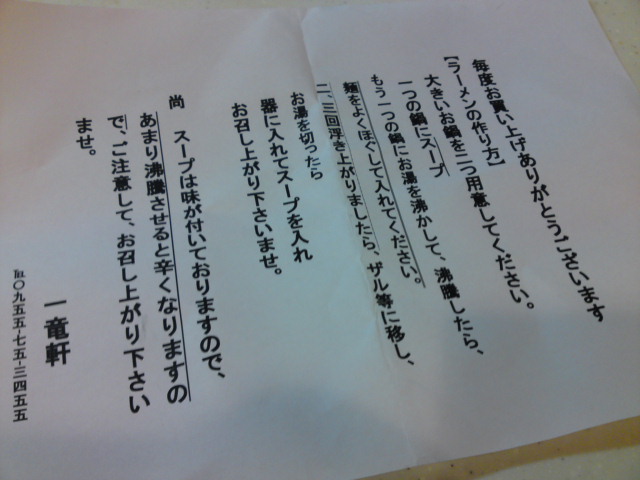 毎度お買い上げありがとうございます
【ラーメンの作り方】
大きいお鍋を二つ用意してください。
一つの鍋にスープ
もう一つの鍋にお湯を沸かして、沸騰したら、
麺をよくほぐして入れてください。
二、三回浮き上がりましたら、ザル等に移し、
お湯を切ったら
器に入れてスープを入れ
お召し上がり下さいませ。
尚 スープは味が付いておりますので、
あまり沸騰させると辛くなりますの
で、ご注意して、お召し上がり下さい
ませ。
一竜軒
℡〇九五五-七五-三四五五